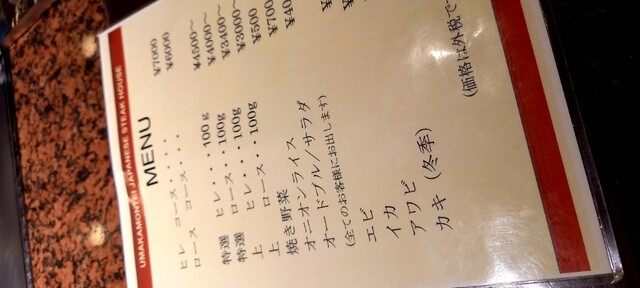 UMAKAMONTEI JAPANESE STEAK HOUSE
MENU
ヒレ コース・・・・ ¥7000
ロース コース・・・・ ¥6000
特選 ヒレ・・・100g ¥4500～
特選 ロース・・100g ¥4000～
上 ヒレ・・・100g ¥3400～
上 ロース・・100g ¥3000～
焼き野菜 ¥500
オニオンライス ¥700
オードブル/サラダ ¥40
(全てのお客様にお出します)
エビ
イカ
アワビ
カキ (冬季)
(価格は外税で